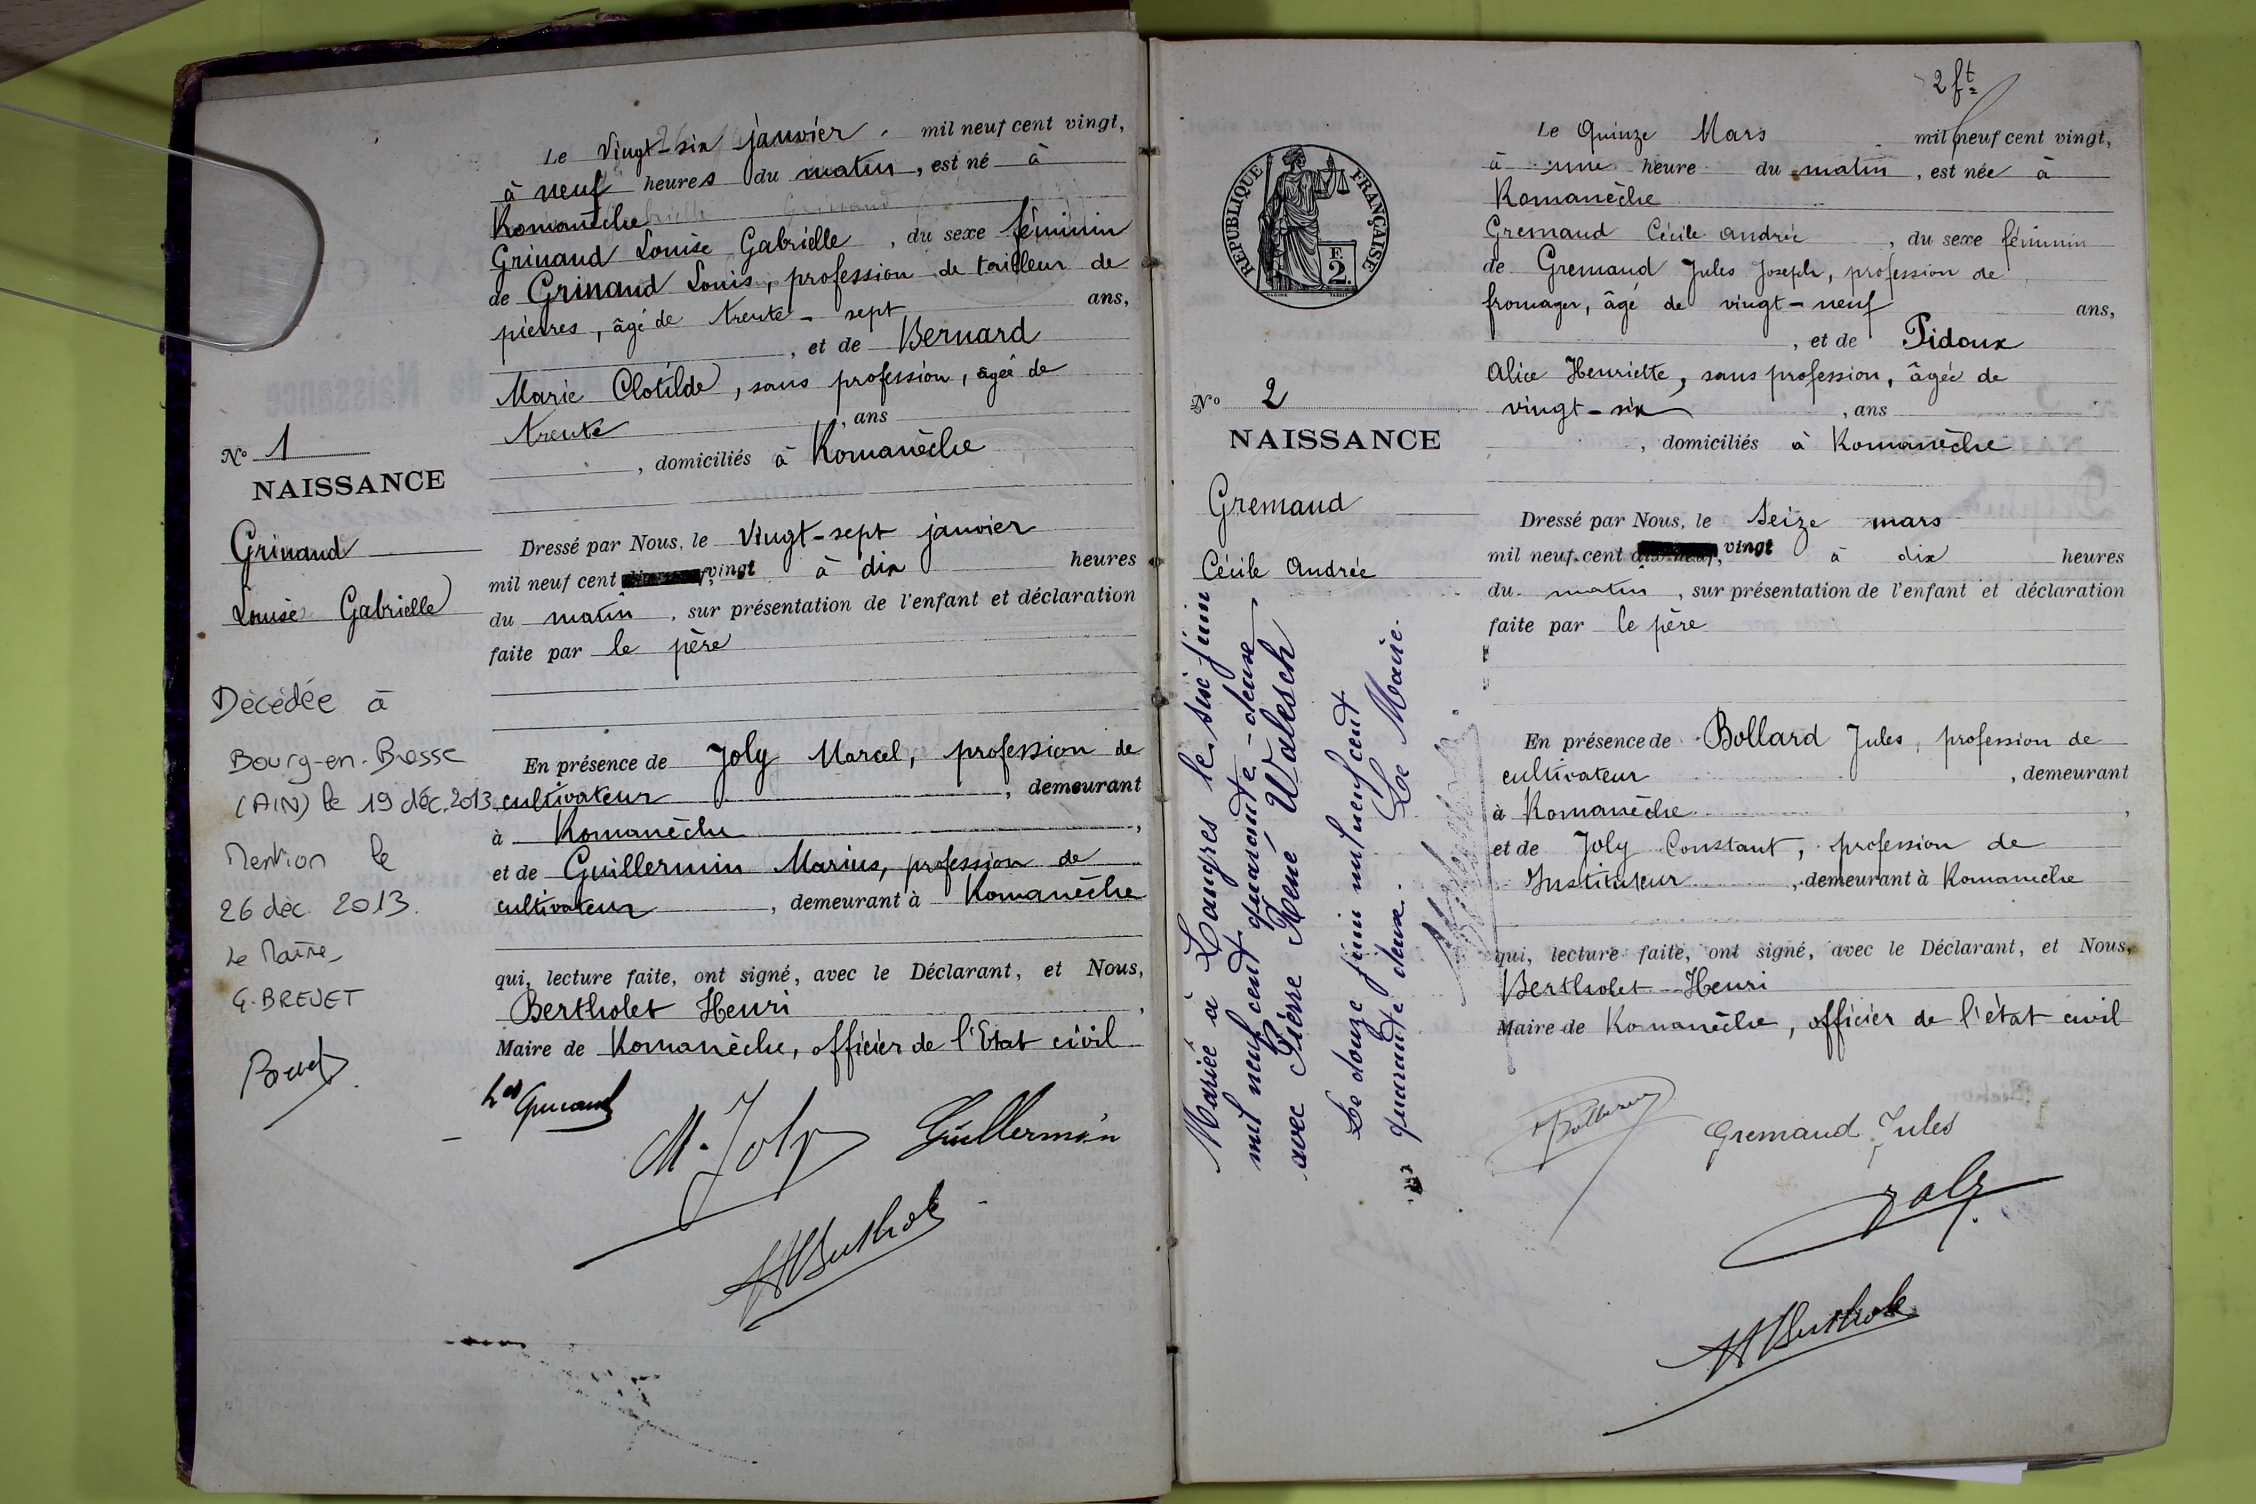 Le Vingt-six janvier mil neuf cent vingt,
à neuf heures du matin, est né à
Romanèche
Grinand Louise Gabrielle, du sexe féminin
de Grinand Louis, profession de tailleur de
pierres, âgé de trente-sept ans,
, et de Bernard
Marie Clotilde, sans profession, âgée de
trente, ans
, domiciliés à Romanèche
No 1
NAISSANCE
Grinand
Louise Gabrielle
Dressé par Nous, le Vingt-sept janvier
mil neuf cent vingt à dix heures
du matin, sur présentation de l'enfant et déclaration
faite par le père
Décédée à
Bourg-en-Bresse
(AIN) le 19 déc. 2013
Mention le
26 déc. 2013.
Le Maire
G. BREVET
En présence de Joly Marcel, profession de
cultivateur, demeurant
à Romanèche,
et de Guillermin Marius, profession de
cultivateur, demeurant à Romanèche
qui, lecture faite, ont signé, avec le Déclarant, et Nous,
Bertholet Henri,
Maire de Romanèche, officier de l'Etat civil
M. Joly Guillermin
2 ft
REPUBLIQUE FRANÇAISE
E.
2.
Le Quinze Mars mil neuf cent vingt,
à une heure du matin, est née à
Romanèche
Gremaud Cécile Andrée, du sexe féminin
de Gremaud Jules Joseph, profession de
fromager, âgé de vingt-neuf ans,
, et de Pidoux
Alice Henriette, sans profession, âgée de
vingt-six, ans
, domiciliés à Romanèche
No 2
NAISSANCE
Gremaud
Cécile Andrée
Mariée à Langres le six juin
mil neuf cent quarante-deux
avec Pierre René Walesch
Le douze juin mil neuf cent
quarante deux. Le Maire.
Dressé par Nous, le Seize mars
mil neuf cent dix-neuf, vingt à dix heures
du matin, sur présentation de l'enfant et déclaration
faite par le père
En présence de Bollard Jules, profession de
cultivateur, demeurant
à Romanèche,
et de Joly Constant, profession de
Instituteur, demeurant à Romanèche
qui, lecture faite, ont signé, avec le Déclarant, et Nous,
Bertholet Henri
Maire de Romanèche, officier de l'état civil
Gremaud Jules
Joly